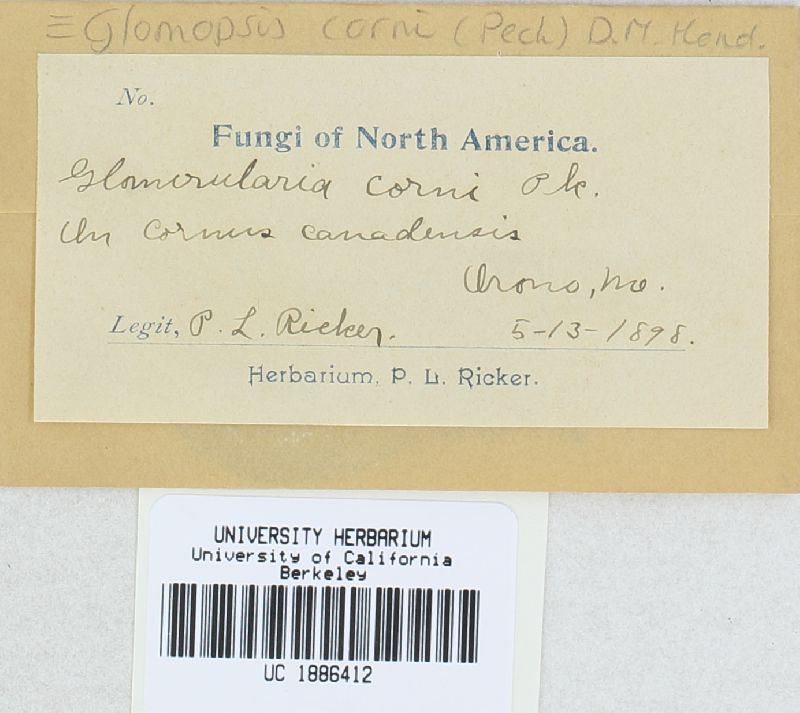 ≡ Glomopsis corni (Peck) D.M. Hend.
No.
Fungi of North America.
Glomerularia corni Pk.
On Cornus canadensis
Orono, Me.
Legit, P. L. Ricker. 5-13-1898.
Herbarium, P. L. Ricker.
UNIVERSITY HERBARIUM
University of California
Berkeley
UC 1886412